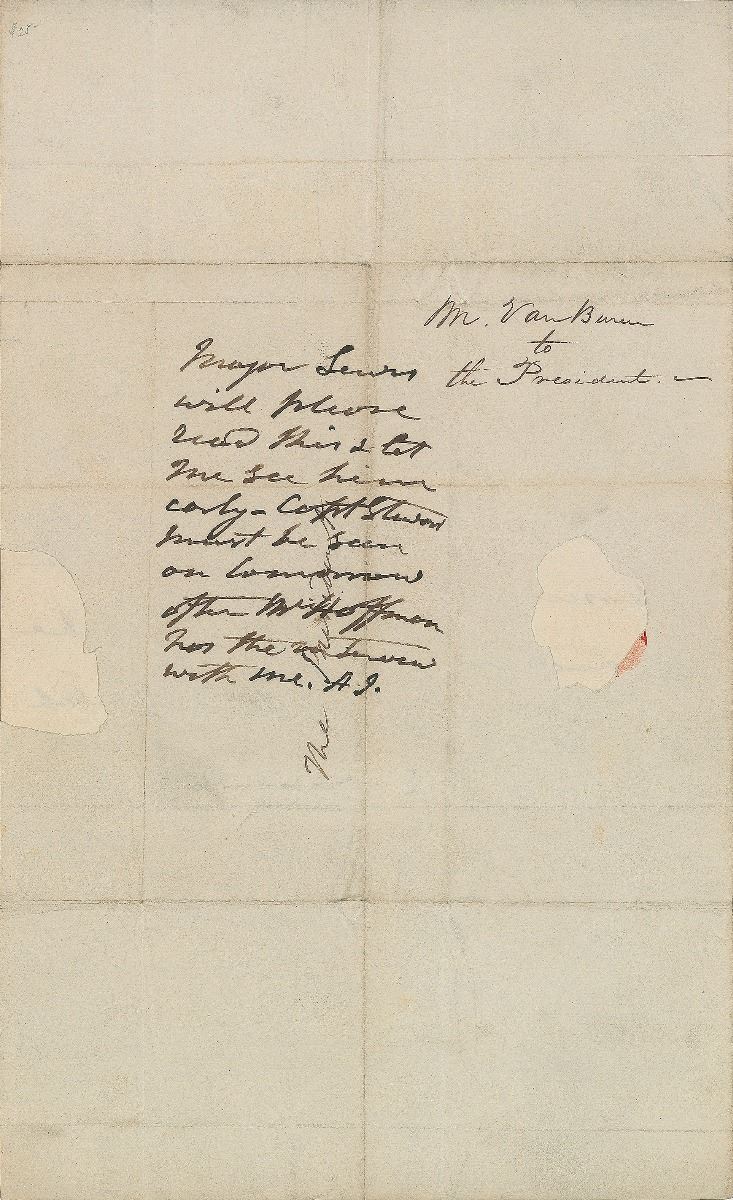 Mr. Van Buren
to
the President. —
Major Lewis
will please
read this & let
me see him
early - Capt
must be seen
on tomorrow
after Mr Hoffman
has the interview
with me. A. J.
The